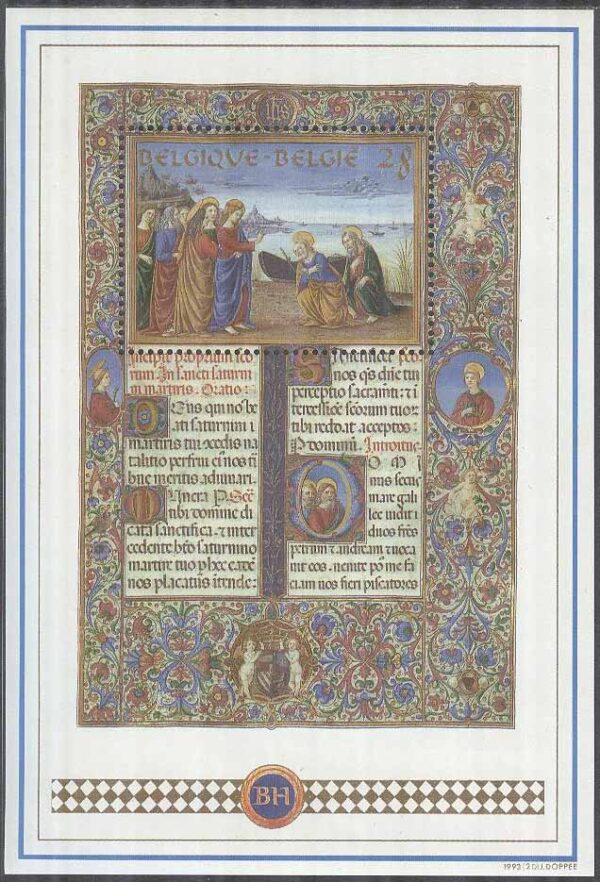 ihs
BELGIQUE - BELGIË 28
Incipit propriũ sãcto
rum. In sancti saturni
ni martiris. Oratio:
DEus qui nos be
ati saturnini
martiris tui cõcedis na
talitio perfrui eiꝰ nos
meritis adiuuari.
Munera P. Secr̃
tibi domine di
cata sanctifica. et inter
cedente bt̃o saturnino
martire tuo p hec eadẽ
nos placatus ĩtende:
nos q̃s dñe tui
perceptio sacramti: et ĩ
tercessiõe sc̃orum tuor
tibi reddat acceptos:
P dominũ. Introitus
DOMI
nus secus
mare gali
lee uidit
duos fr̃es
petrum et andream et uoca
uit eos. uenite po me fa
ciam uos fieri piscatores
BH
1993|2 DU.J.DOPPEE